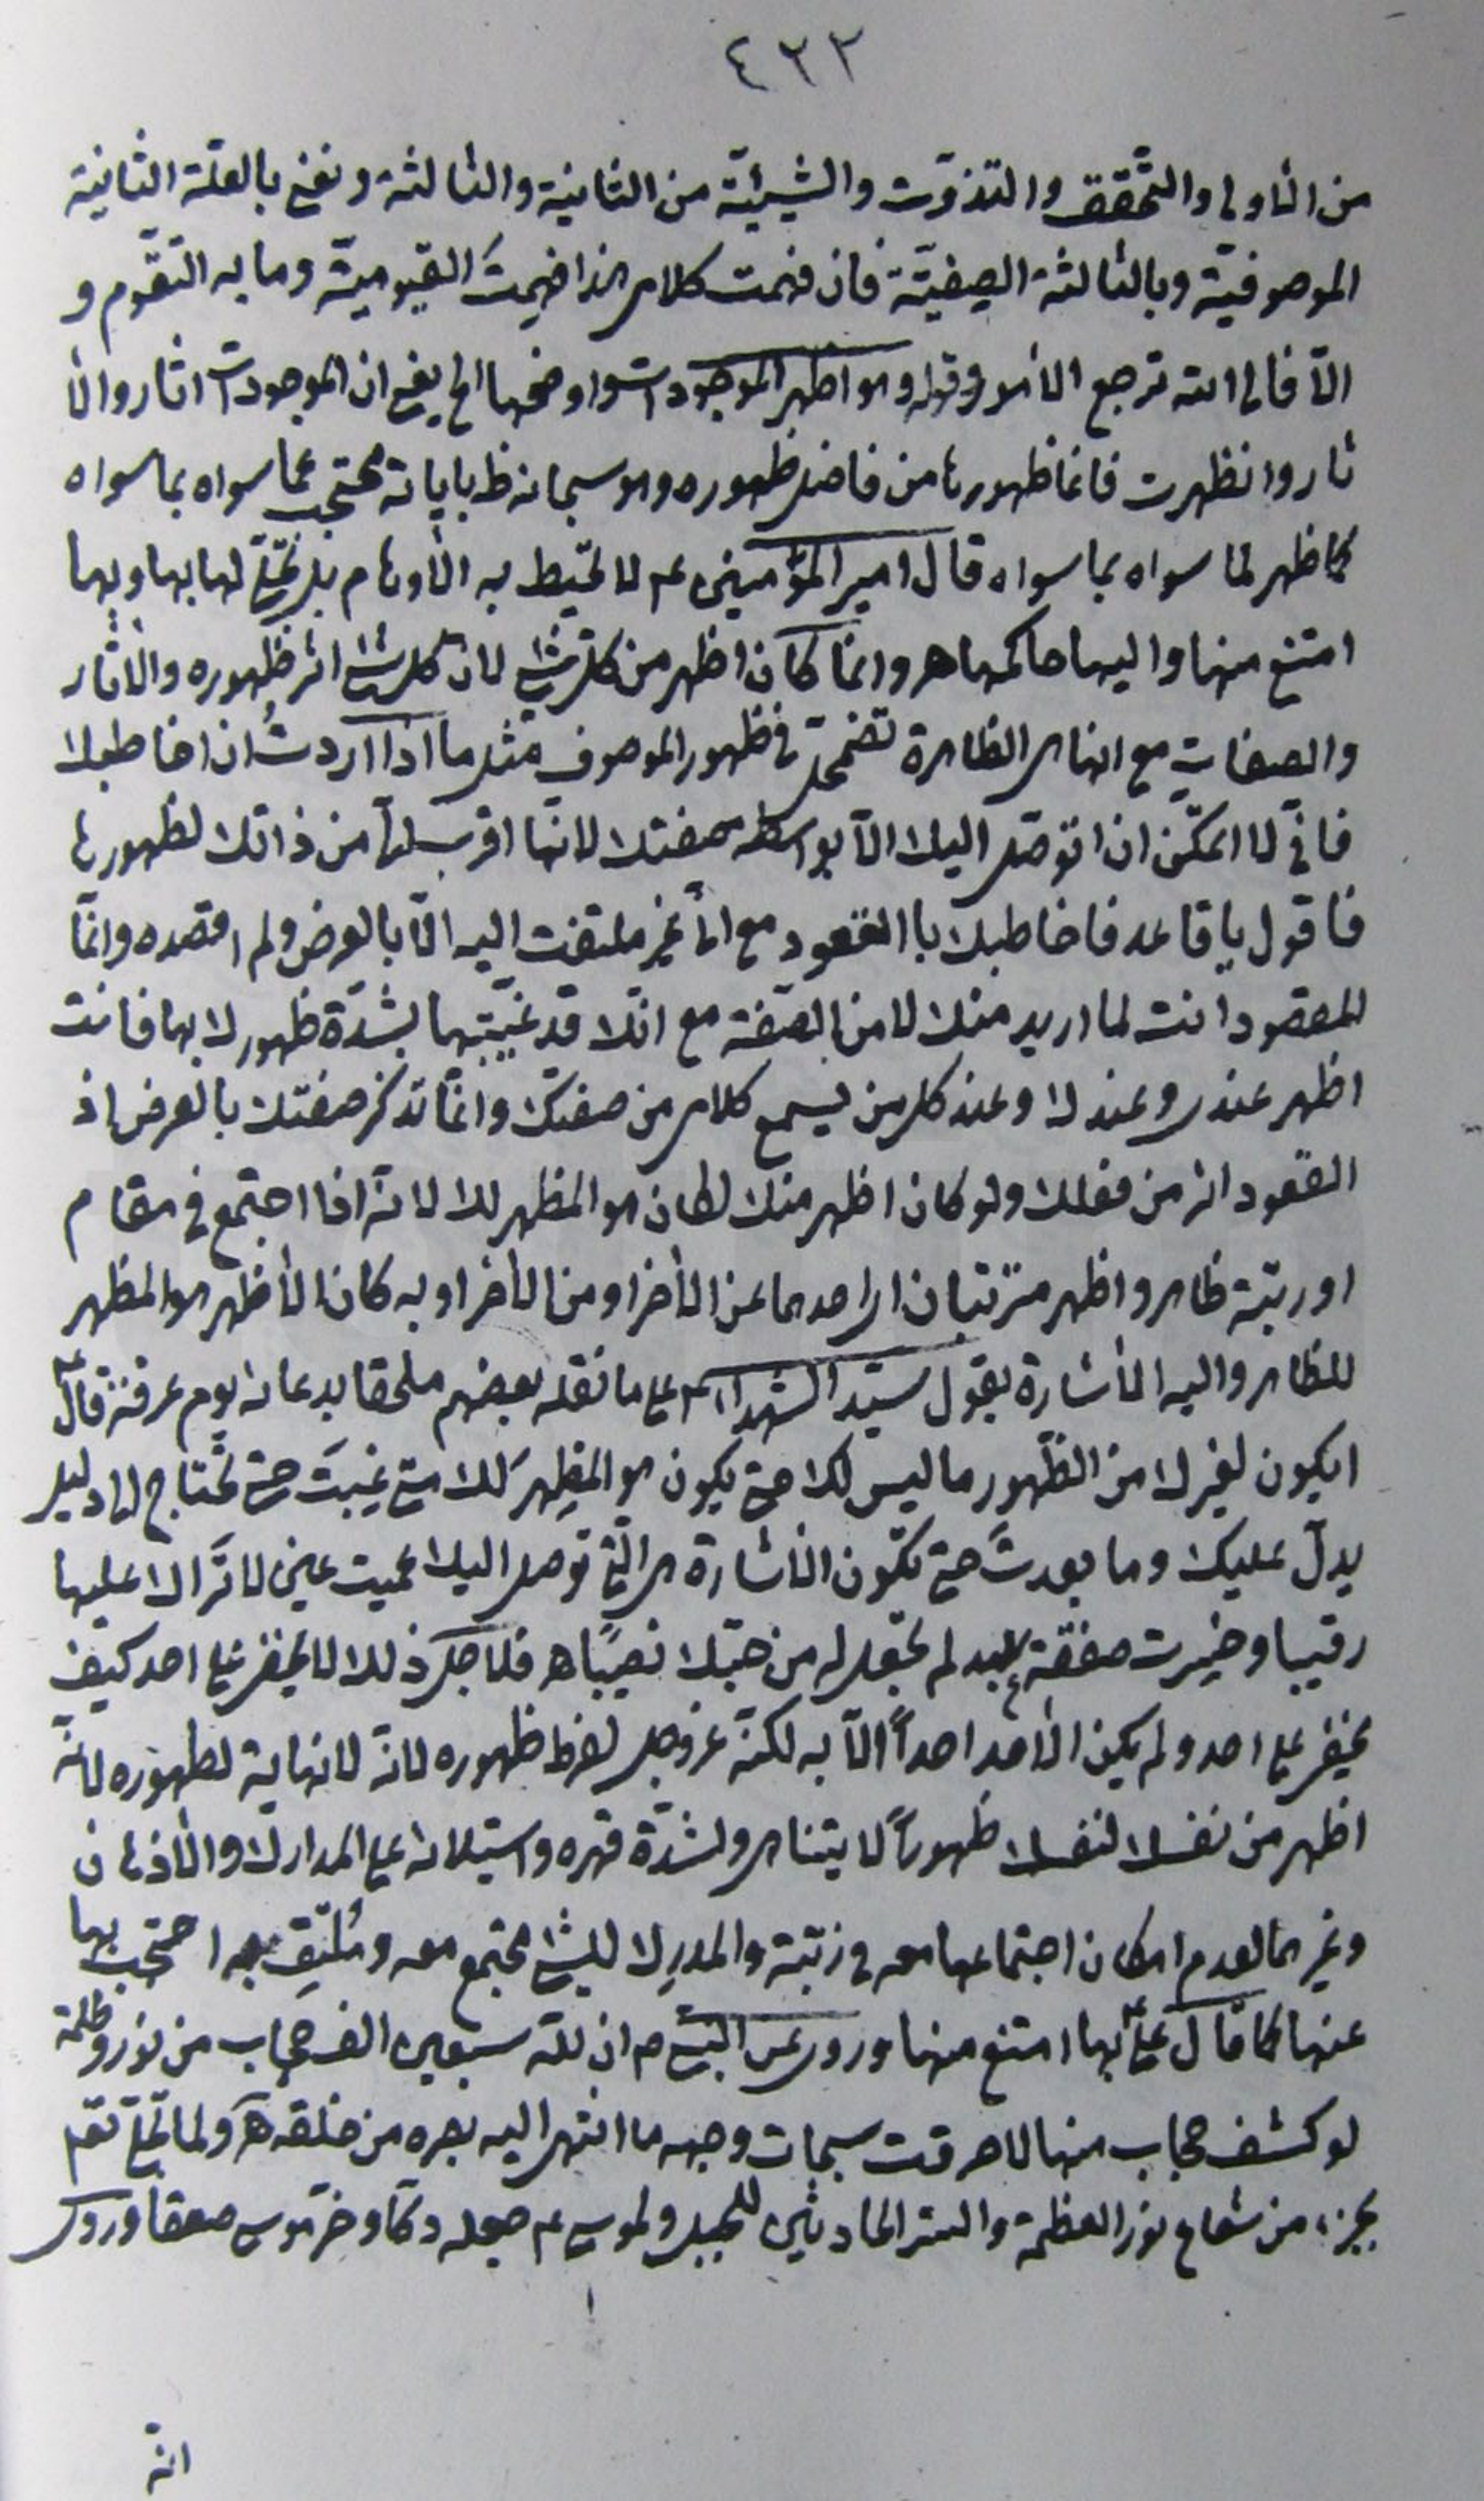 ٤٢٢
من الأولى والتحقق والتذوّت والشيئيّة من الثانية والثالثة ونعني بالعلّة الثانية
الموصوفيّة وبالثالثة الصفيّة فان فهمت كلامى هذا فهمتَ القيوميّة وما به التقوّم و
الّا فالى الله ترجع الأمور وقوله وهو اظهر الموجودات واوضحها الخ يعني ان الموجودات اثار والأ
ثار وان ظهرت فانما ظهورها من فاضل ظهوره وهو سبحانه ظ باياته محتجب عما سواه بما سواه
كما ظهر لما سواه بما سواه قال امير المؤمنين عم لا تحيط به الأوهام بل تجلّى لها بها وبها
امتنع منها واليها حاكمها هـ وانما كان اظهر من كلّ شئ لان كل شئ اثر ظهوره والاثار
والصفات مع انها هى الظاهرة تضمحلّ فى ظهور الموصوف مثل ما اذا اردتُ ان اخاطبك
فانّى لا اتمكّن ان اتوصّل اليك الّا بواسطة صفتك لانّها اقرب لى من ذاتك لظهورها
فاقول يا قاعد فاخاطبك با القعود مع انى غير ملتفت اليه الّا بالعرض ولم اقصده وانّما
المقصود انت لما اريد منك لا من الصّفة مع انّك قد غيّبتها بشدّة ظهورك بها فانت
اظهر عندى وعندك وعند كل من يسمع كلامى من صفتك وانّما تذكر صفتك بالعرض اذ
القعود اثر من فعلك ولو كان اظهر منك لكان هو المظهر لك لانّه اذا اجتمع فى مقام
او رتبة ظاهر واظهر مترتبان اى احدهما عن الأخر او من الأخر او به كان الأظهر هو المظهر
للظاهر واليه الأشارة بقول سيّد الشهداء عم على ما نقله بعضهم ملحقا بدعائه يوم عرفة قال ع
ايكون لغيرك من الظّهور ما ليس لك حتى يكون هو المظهر لك متى غبتَ حتى تحتاج الى دليل
يدلّ عليك وما بعدتَ حتى تكون الأشارة هى الّتى توصل اليك عميت عين لا تَراك عليها
رقيبا وخسرت صفقة عبد لم تجعل له من حبّك نصيبًا هـ فلاجل ذلك لا يخفى على احد كيف
يخفى على احد ولم يكن الأحد احداً الّا به لكنّه عزوجل لفرط ظهوره لانّه لا نهاية لظهوره لأنّه
اظهر من نفسك لنفسك ظهوراً لا يتناهى ولشدّة قهره واستيلائه على المدارك والأذهان
وغيرهما لعدم امكان اجتماعها معه فى رتبة والمدرِك للشئ مجتمع معه ومُلتقٍ به احتجب بها
عنها كما قال علىّ ع بها امتنع منها وروى عن النبي ص ان لله سبعين الف حجاب من نور وظلمة
لو كشف حجاب منها لاحرقت سبحات وجهه ما انتهى اليه بصره من خلقه هـ ولما تجلّى تعه
بجزء من شعاع نور العظمة والستر الحادثين للجبل ولموسى عم جعله دكّا وخرّ موسى صعقا وروى
انّه